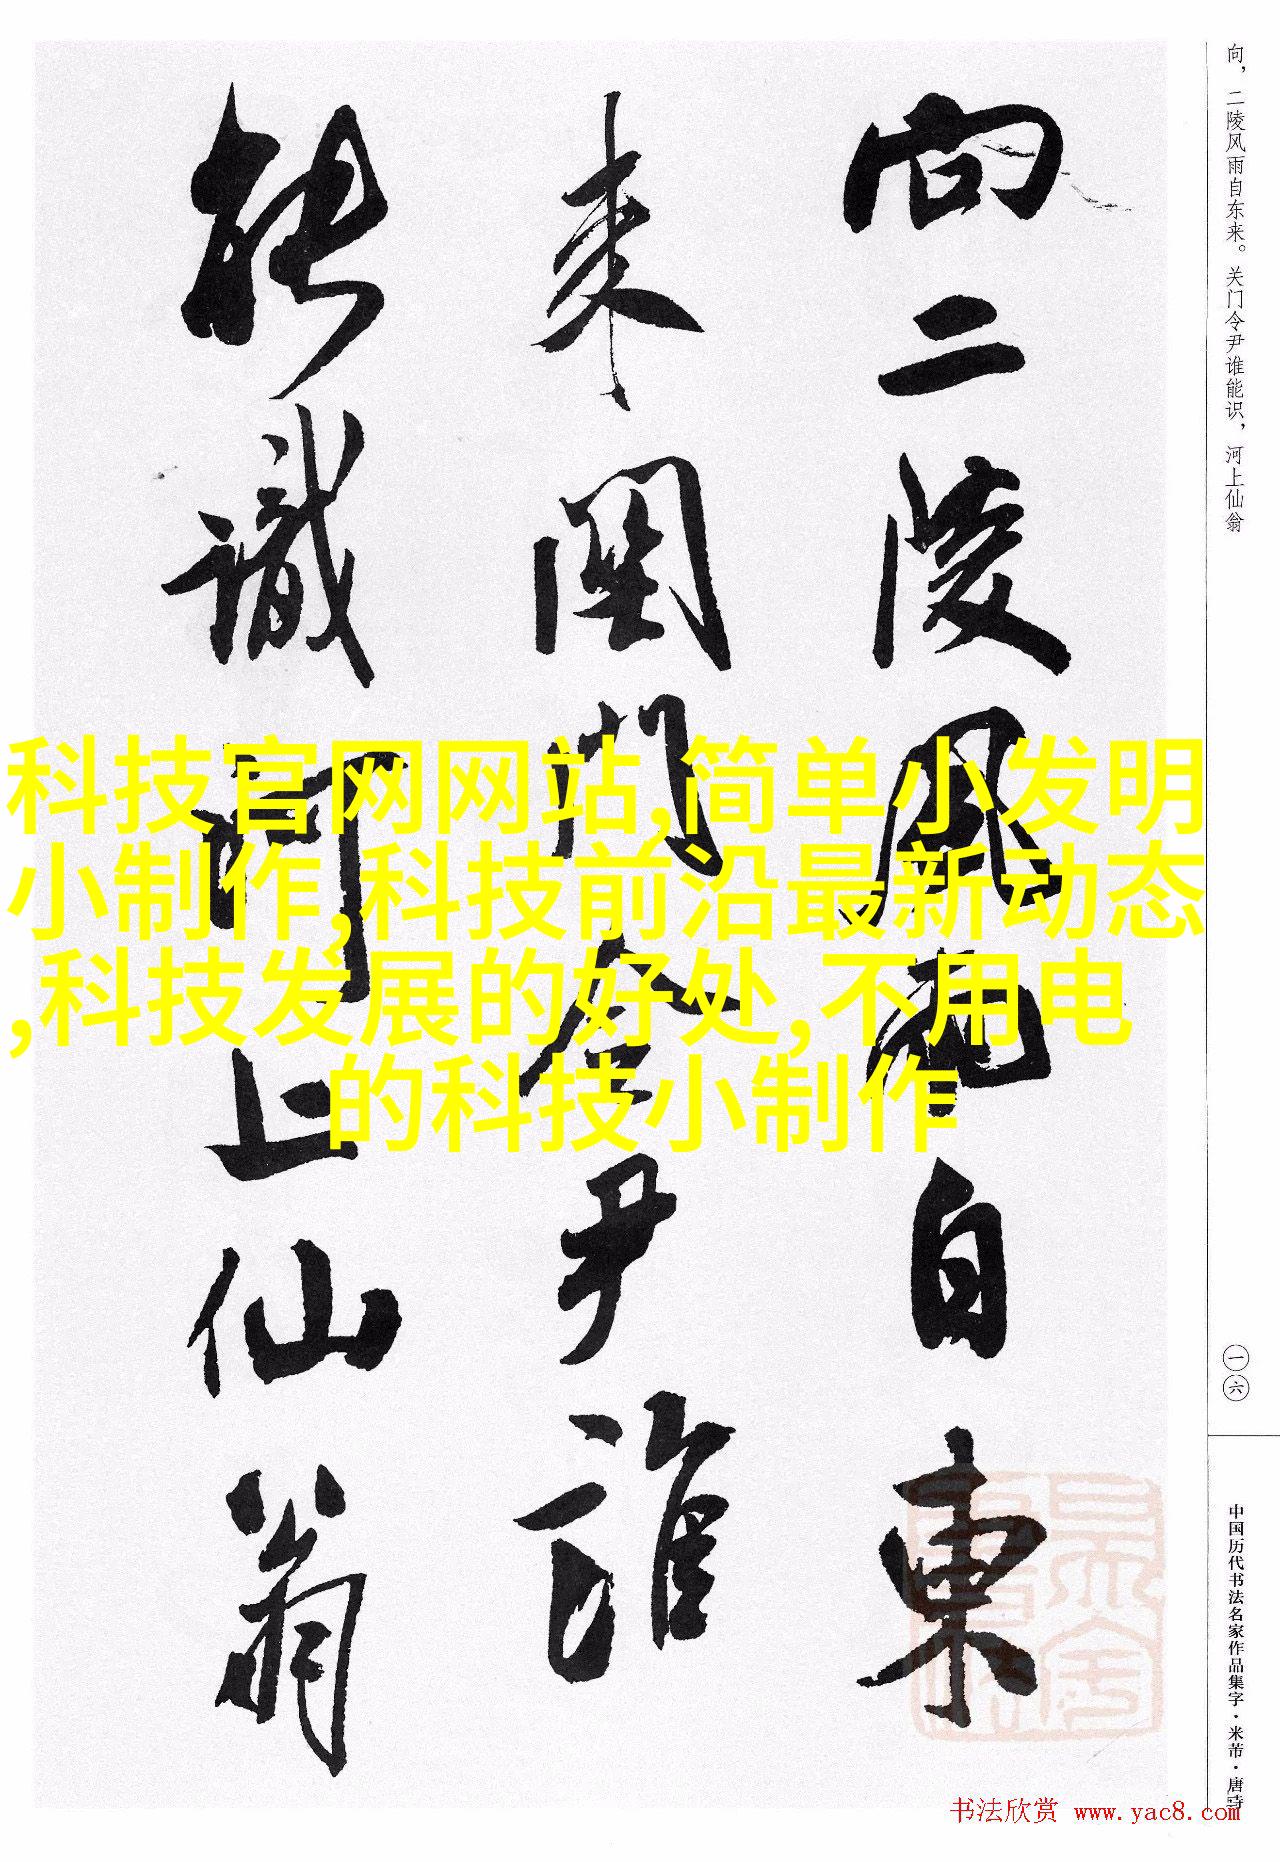 向，二陵风雨自东来。关门令尹谁能识，河上仙翁
一六
中国历代书法名家作品集字·米芾·唐诗
向二陵風雨自東
来關門令尹誰
能識河上仙翁
科技官网网站,简单小发明
小制作,科技前沿最新动态
,科技发展的好处,不用电
的科技小制作
书法欣赏 www.yac8.com